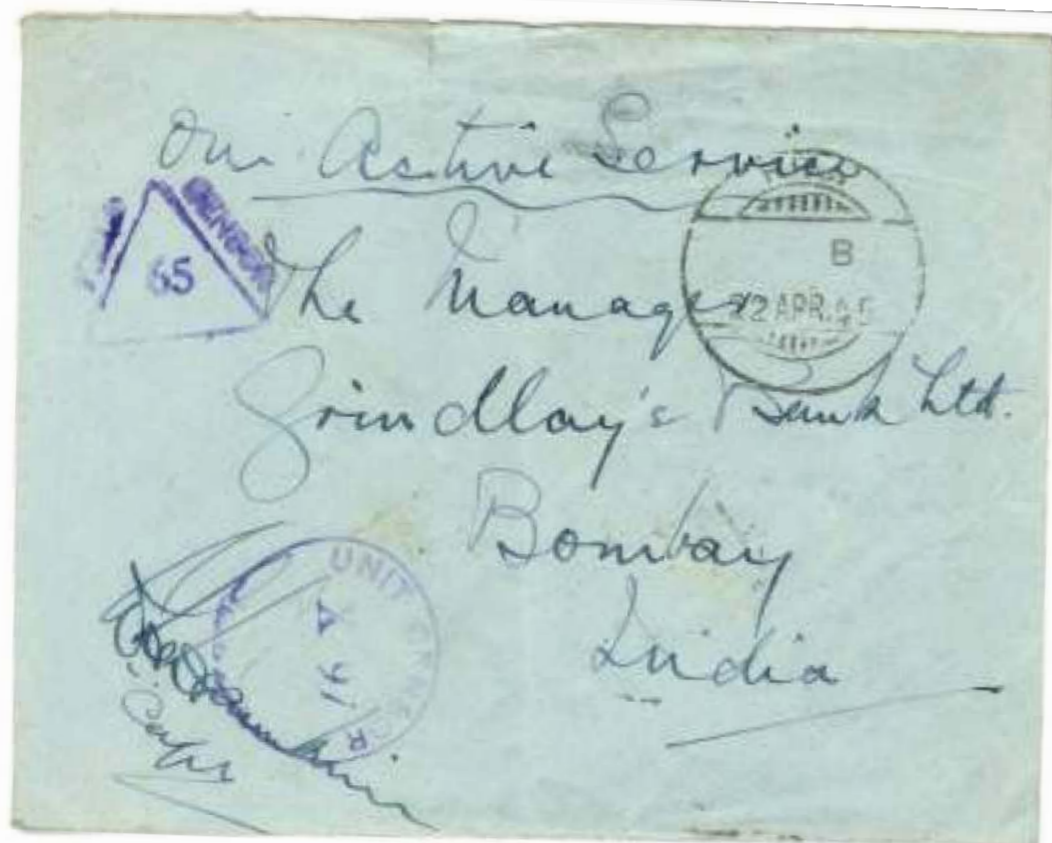 On Active Service
CENSOR
65
B
22 APR. 45
The Manager
Grindlay's Bank Ltd.
Bombay
India
UNIT CENSOR
A
Capt